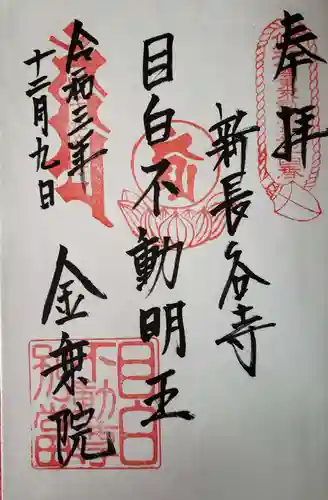 奉拝
新長谷寺
目白不動明王
令和三年
十二月九日
金乗院
目白
不動尊
別當